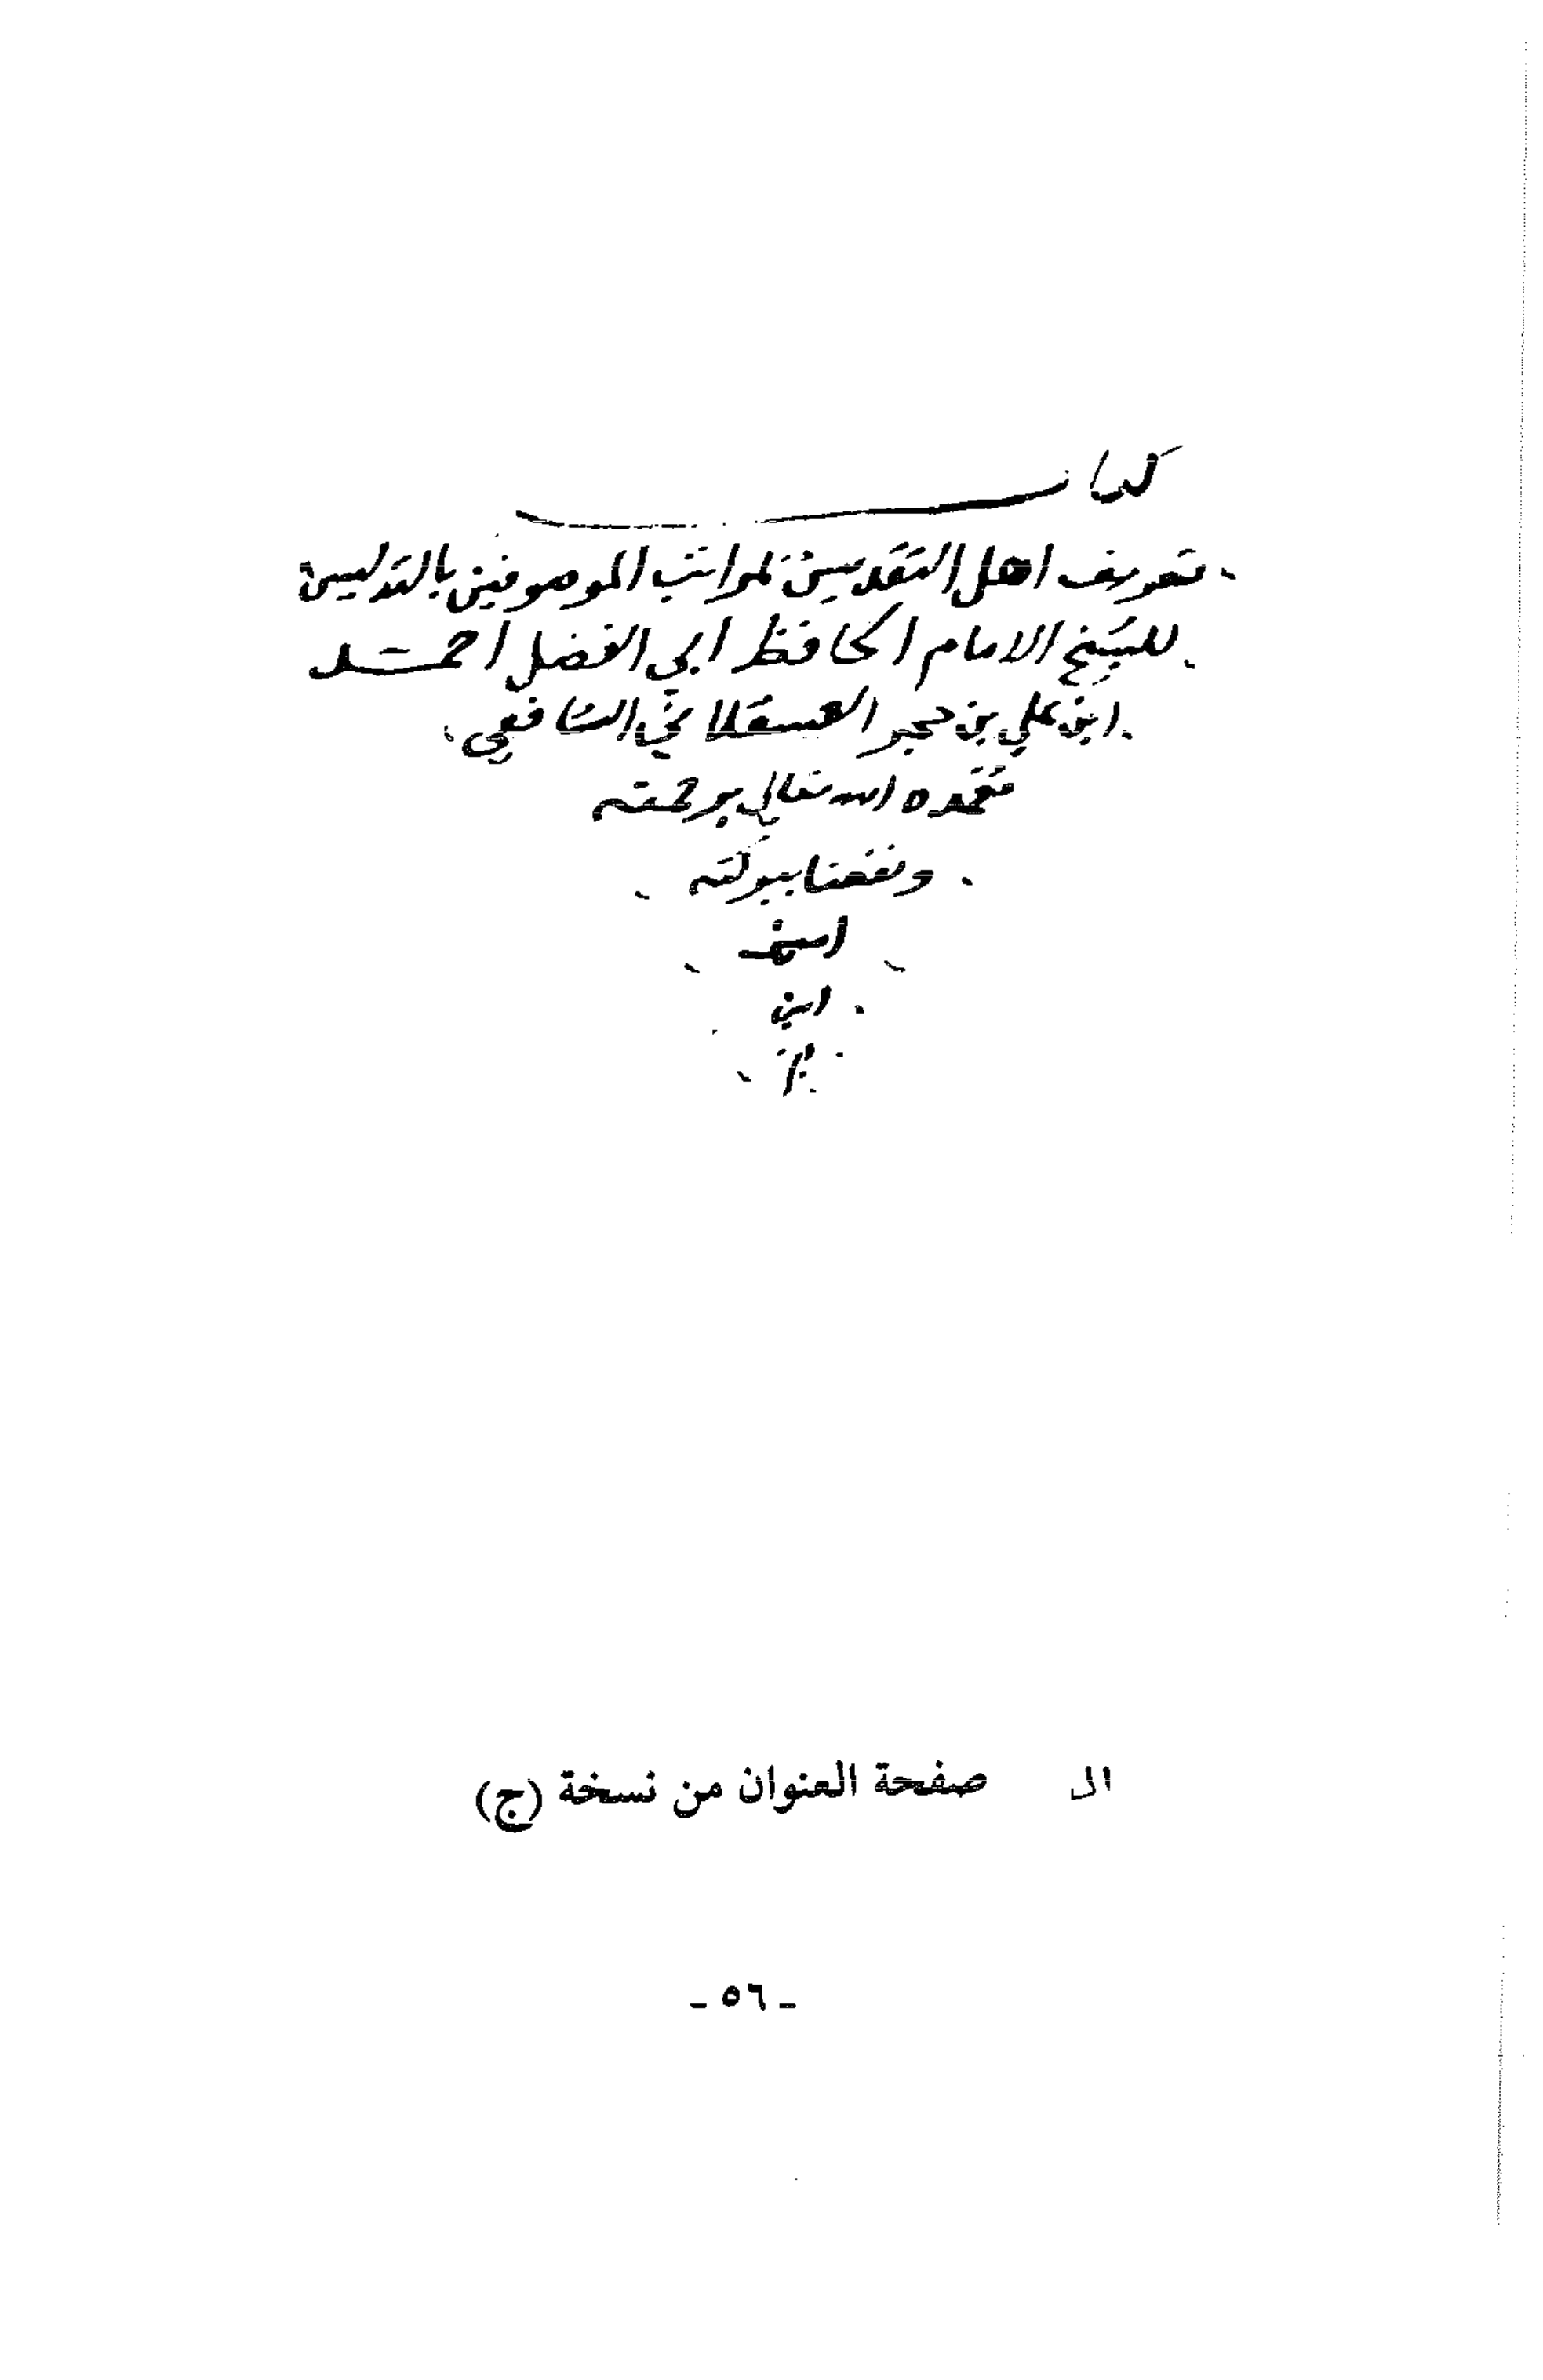 كتاب
تعريف اهل التقديس لمراتب الموصوفين بالتدليس
للشيخ الامام الحافظ ابي الفضل احمد
ابن علي بن حجر العسقلاني الشافعي
تغمده الله تعالى برحمته
ونفعنا ببركته
امين
صفحة العنوان من نسخة (ج)
- ٥٦ -